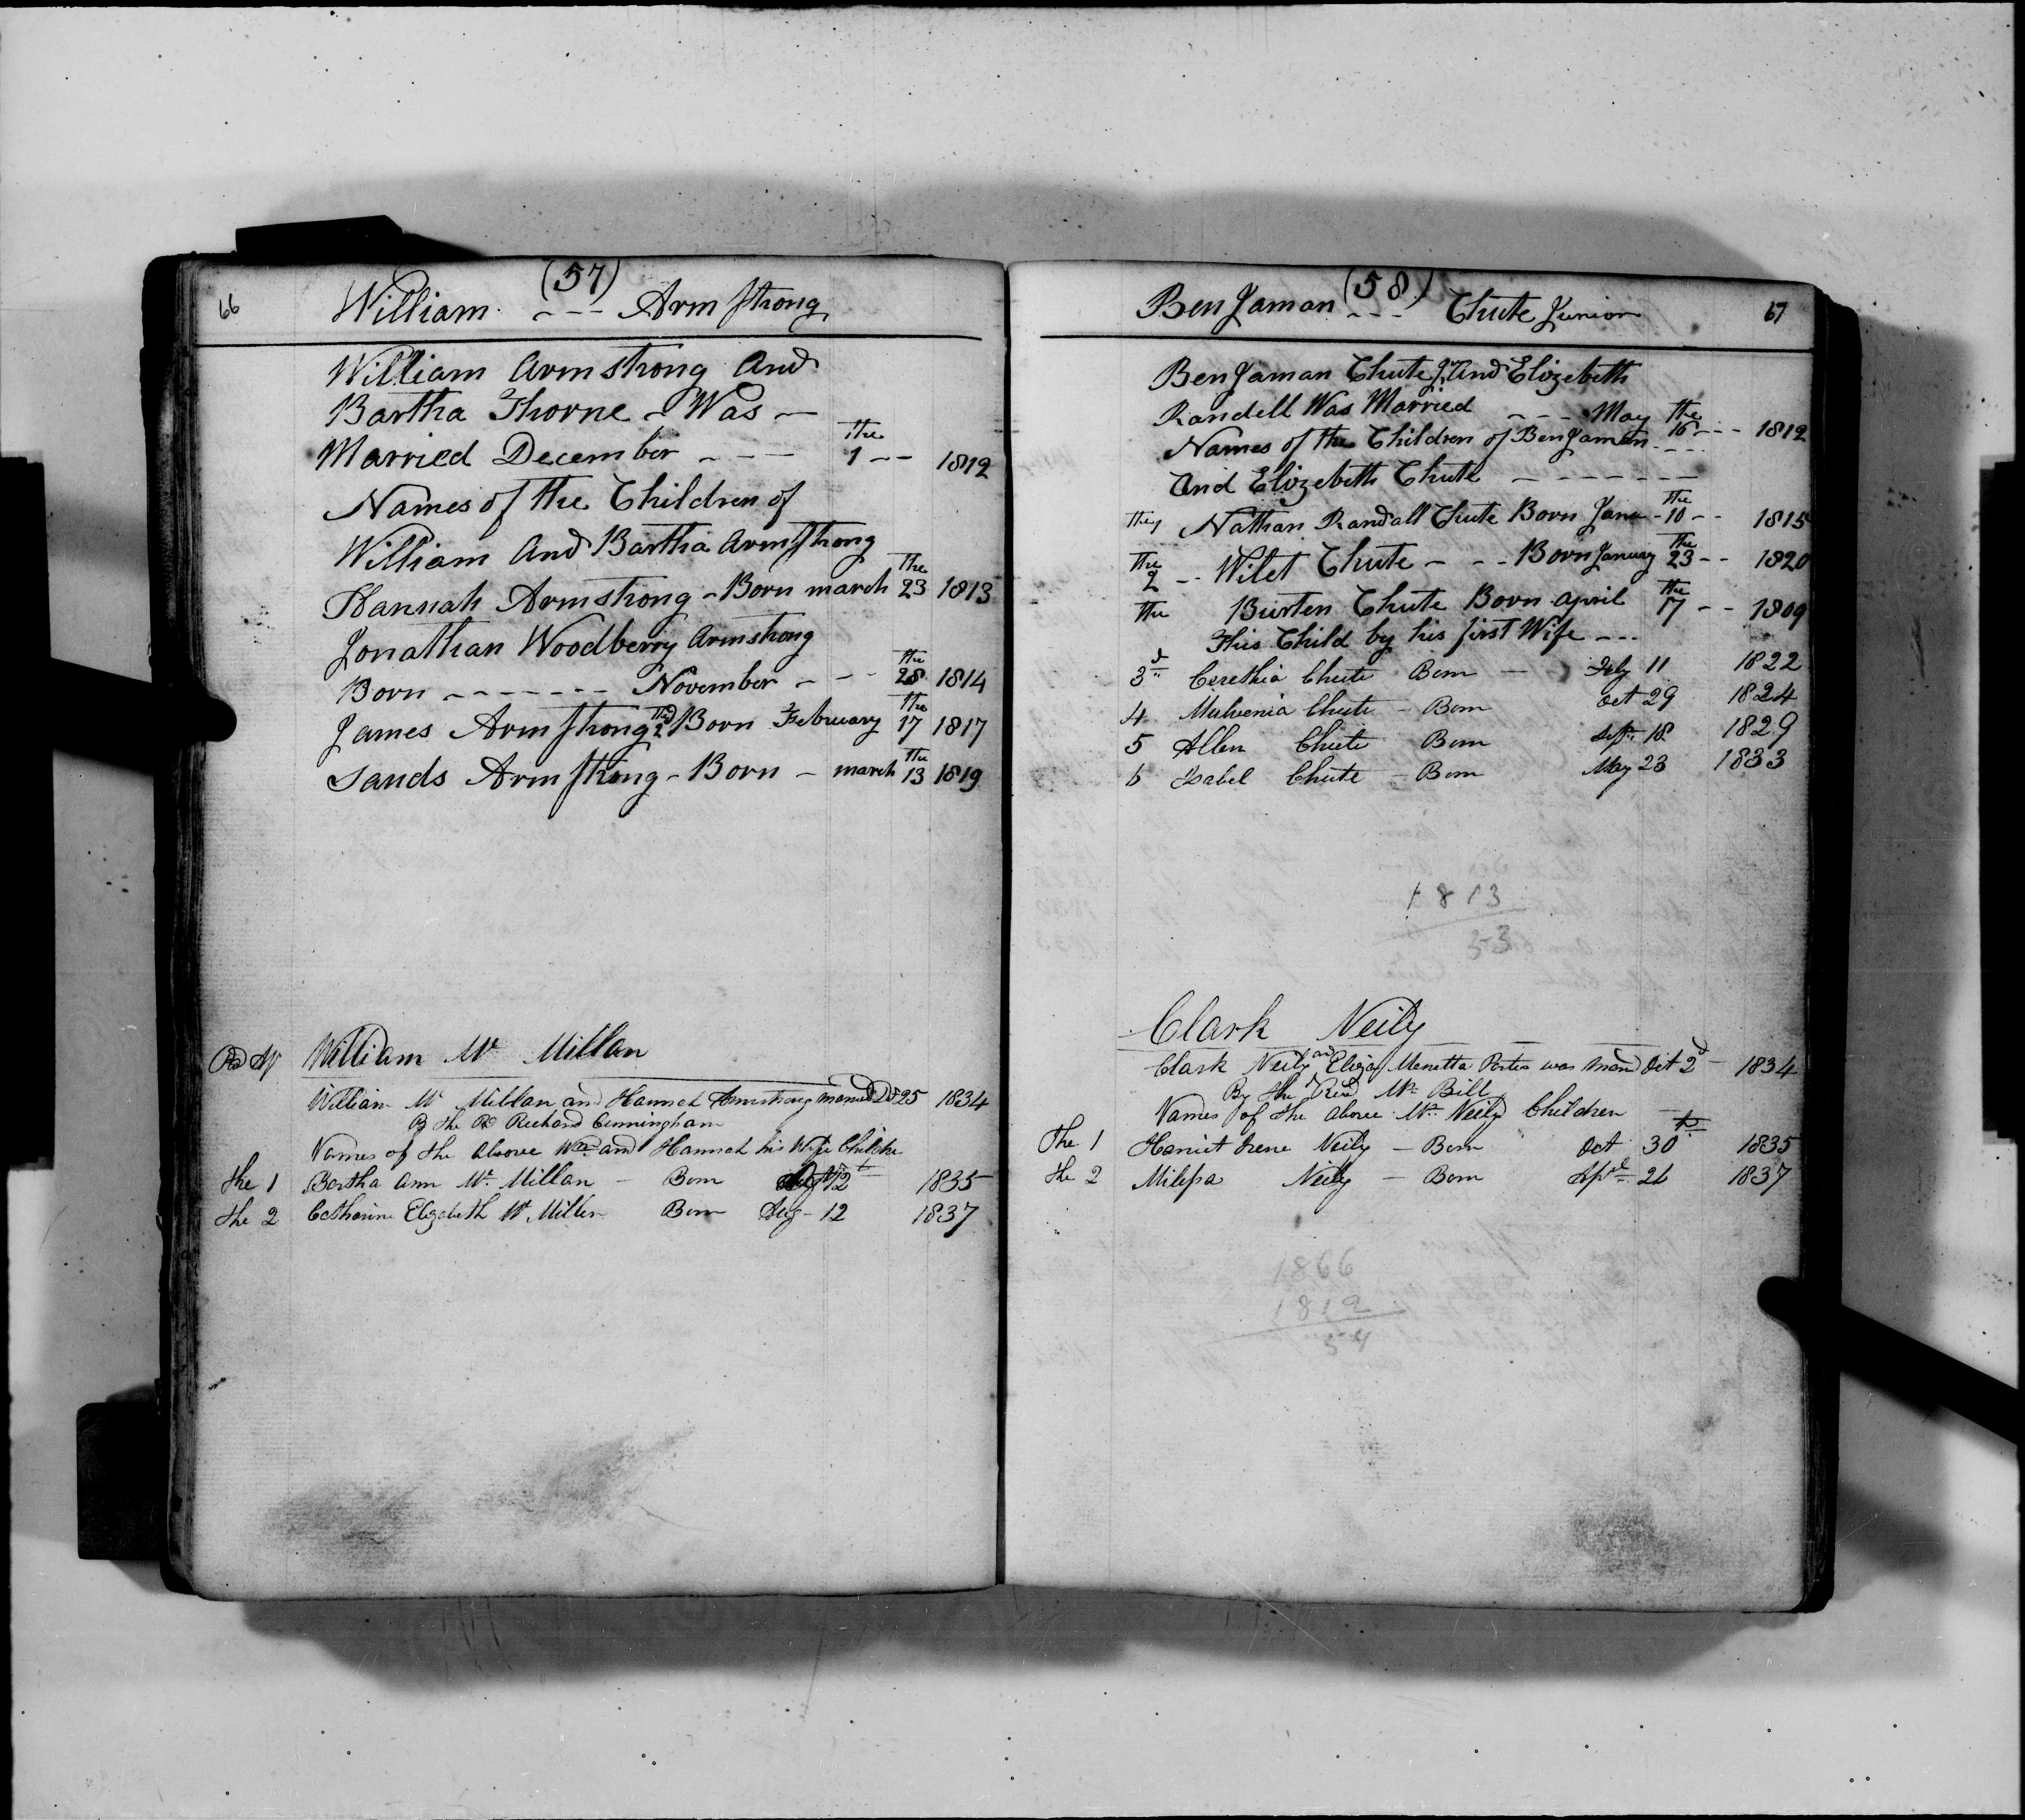 66
(57)
William --- Armstrong
William Armstrong And
Bartha Thorne - Was -
Married December --- the 1 -- 1812
Names of the Children of
William And Bartha Armstrong
Hannah Armstrong - Born march the 23 1813
Jonathan Woodberry Armstrong
Born ------- November --- the 28 1814
James Armstrong 2nd Born February the 17 1817
Sands Armstrong - Born - march the 13 1819
William Mc Millan
William Mc Millan and Hannah Armstrong married 25 1834
By the Rd Richard Cunningham
Names of the above Wm and Hannah his Wife Childre
the 1 Bertha Ann Mc Millan - Born 12 1835
the 2 Catharine Elizabeth Mc Millen Born Aug - 12 1837
67
(58)
BenJaman --- Chute Junior
BenJaman Chute Jr And Elizebeth
Randell Was Married --- May the 16 --- 1812
Names of the Children of BenJamen ---
And Elizebeth Chute -------
the 1 Nathan Randall Chute Born June - the 10 -- 1815
the 2 -- Wilet Chute - - - Born January the 23 -- 1820
the Burten Chute Born april the 17 -- 1809
This Child by his first Wife ---
3d Cerethia Chute Born - July 11 1822
4 Malvenia Chute - Born Oct 29 1824
5 Allen Chute Born Sept 18 1829
6 Isabel Chute - Born May 23 1833
1813
53
Clark Neily
Clark Neily and Eliza Menetta Porter was Mard Oct 2d - 1834
By the Revd Mr Bill
Names of the above Mr Neily Children
The 1 Harriet Irene Neily - Born Oct 30th 1835
the 2 Milissa Neily - Born Apl 26 1837
1866
1812
54